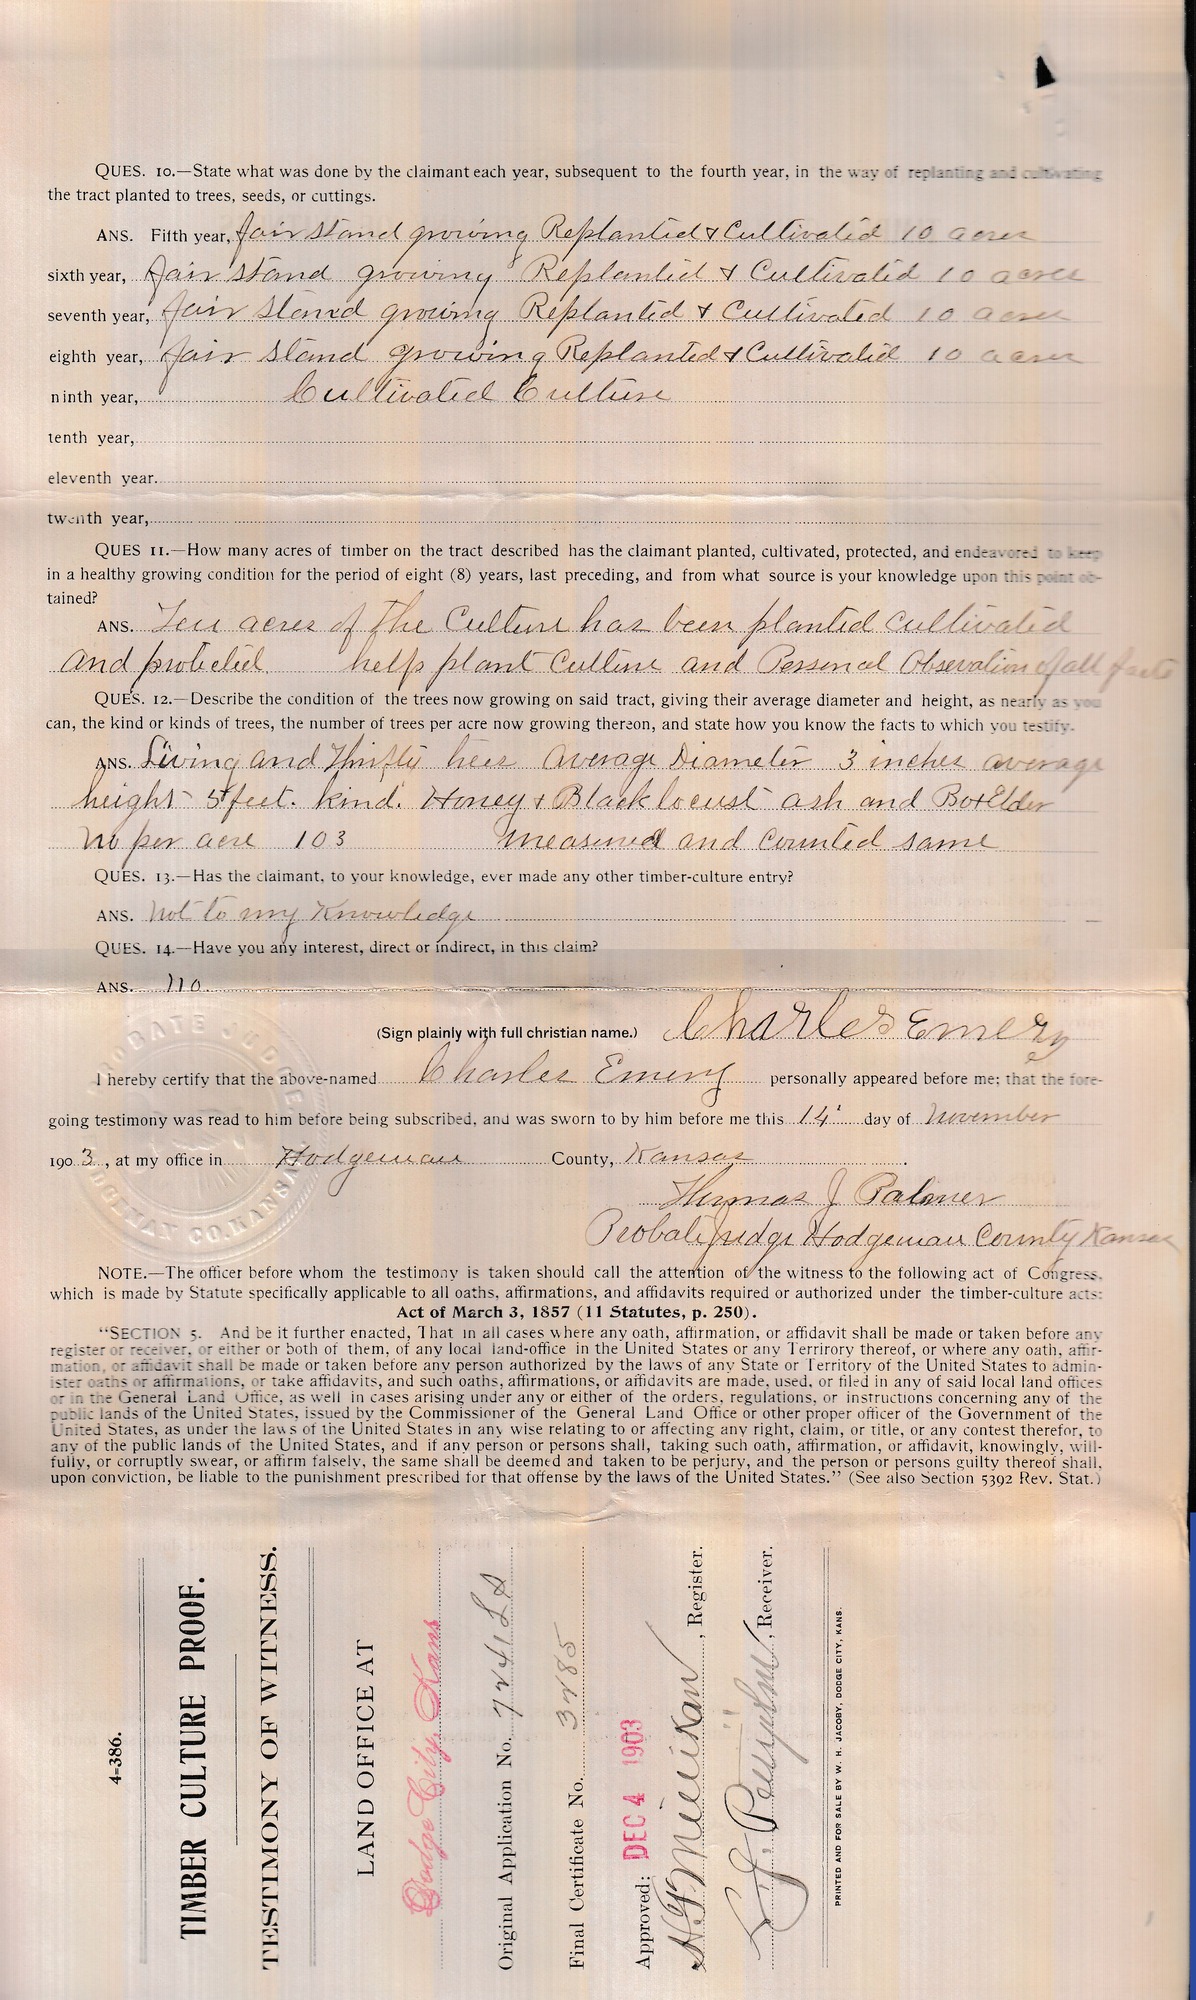 QUES. 10.—State what was done by the claimant each year, subsequent to the fourth year, in the way of replanting and cultivating
the tract planted to trees, seeds, or cuttings.
ANS. Fifth year, fair stand growing Replanted & Cultivated 10 acres
sixth year, fair stand growing Replanted & Cultivated 10 acres
seventh year, fair stand growing Replanted & Cultivated 10 acres
eighth year, fair stand growing Replanted & Cultivated 10 acres
ninth year, Cultivated Culture
tenth year,
eleventh year.
twenth year,
QUES 11.—How many acres of timber on the tract described has the claimant planted, cultivated, protected, and endeavored to keep
in a healthy growing condition for the period of eight (8) years, last preceding, and from what source is your knowledge upon this point ob-
tained?
ANS. Ten acres of the Culture has been planted cultivated
and protected helps plant Culture and Personal Observation of all facts
QUES. 12.—Describe the condition of the trees now growing on said tract, giving their average diameter and height, as nearly as you
can, the kind or kinds of trees, the number of trees per acre now growing thereon, and state how you know the facts to which you testify.
ANS. Living and Thrifty trees average Diameter 3 inches average
height 5 feet. kind. Honey & Black locust ash and BoxElder
no per acre 103 measured and counted same
QUES. 13.—Has the claimant, to your knowledge, ever made any other timber-culture entry?
ANS. Not to my Knowledge
QUES. 14.—Have you any interest, direct or indirect, in this claim?
ANS. no
(Sign plainly with full christian name.) Charles Emery
I hereby certify that the above-named Charles Emery personally appeared before me; that the fore-
going testimony was read to him before being subscribed, and was sworn to by him before me this 14' day of November
190 3, at my office in Hodgeman County, Kansas
Thomas J Palmer
Probate Judge Hodgeman County Kansas
PROBATE JUDGE
HODGEMAN CO. KANSAS
NOTE.—The officer before whom the testimony is taken should call the attention of the witness to the following act of Congress,
which is made by Statute specifically applicable to all oaths, affirmations, and affidavits required or authorized under the timber-culture acts:
Act of March 3, 1857 (11 Statutes, p. 250).
"SECTION 5. And be it further enacted, That in all cases where any oath, affirmation, or affidavit shall be made or taken before any
register or receiver, or either or both of them, of any local land-office in the United States or any Terrirory thereof, or where any oath, affir-
mation, or affidavit shall be made or taken before any person authorized by the laws of any State or Territory of the United States to admin-
ister oaths or affirmations, or take affidavits, and such oaths, affirmations, or affidavits are made, used, or filed in any of said local land offices
or in the General Land Office, as well in cases arising under any or either of the orders, regulations, or instructions concerning any of the
public lands of the United States, issued by the Commissioner of the General Land Office or other proper officer of the Government of the
United States, as under the laws of the United States in any wise relating to or affecting any right, claim, or title, or any contest therefor, to
any of the public lands of the United States, and if any person or persons shall, taking such oath, affirmation, or affidavit, knowingly, will-
fully, or corruptly swear, or affirm falsely, the same shall be deemed and taken to be perjury, and the person or persons guilty thereof shall,
upon conviction, be liable to the punishment prescribed for that offense by the laws of the United States." (See also Section 5392 Rev. Stat.)
4-386.
TIMBER CULTURE PROOF.
TESTIMONY OF WITNESS.
LAND OFFICE AT
Dodge City, Kans
Original Application No. 7241
Final Certificate No. 3285
Approved: DEC 4 1903
H.F. Millikan, Register.
, Receiver.
PRINTED AND FOR SALE BY W. H. JACOBY, DODGE CITY, KANS.